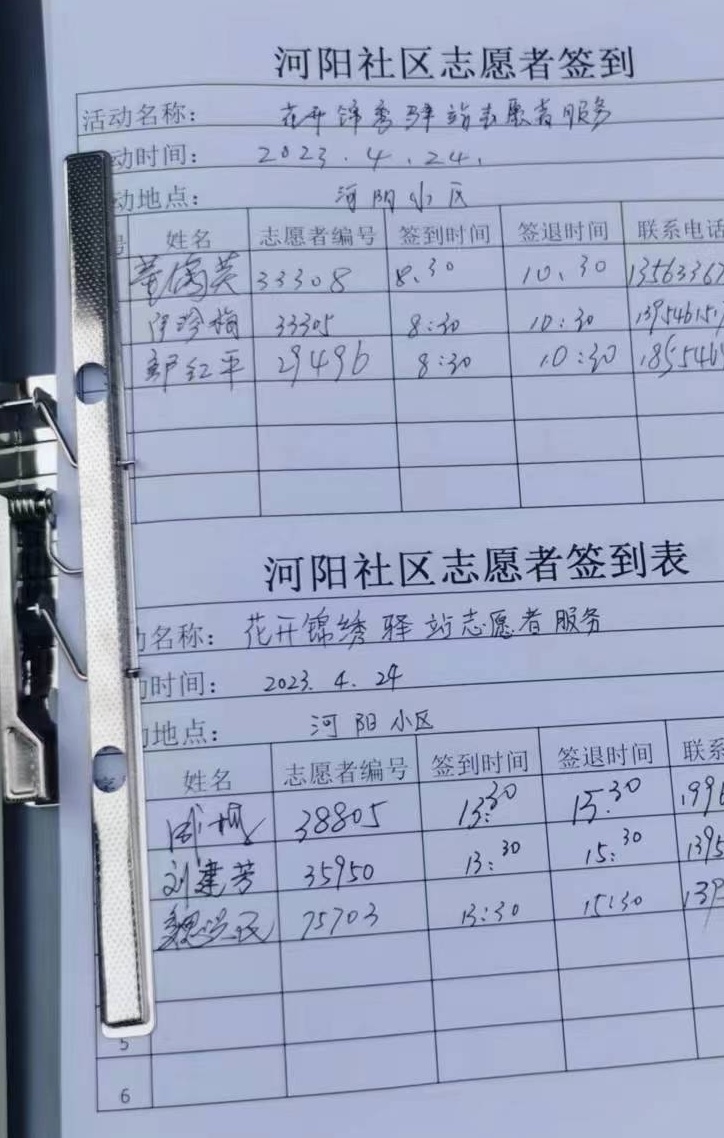 河阳社区志愿者签到
活动名称： 花开锦秀驿站志愿者服务
动时间： 2023.4.24.
动地点： 河阳小区
号 姓名 志愿者编号 签到时间 签退时间 联系电话
33308 8.30 10.30 1356336
33305 8:30 10:30 139546151
郭红平 29496 8:30 10:30 185546
河阳社区志愿者签到表
动名称： 花开锦绣驿站志愿者服务
动时间： 2023.4.24
动地点： 河阳小区
姓名 志愿者编号 签到时间 签退时间 联系
38805 13:30 15:30 199
刘建芳 35950 13:30 15:30 1395
75703 13:30 15:30 139
5
6